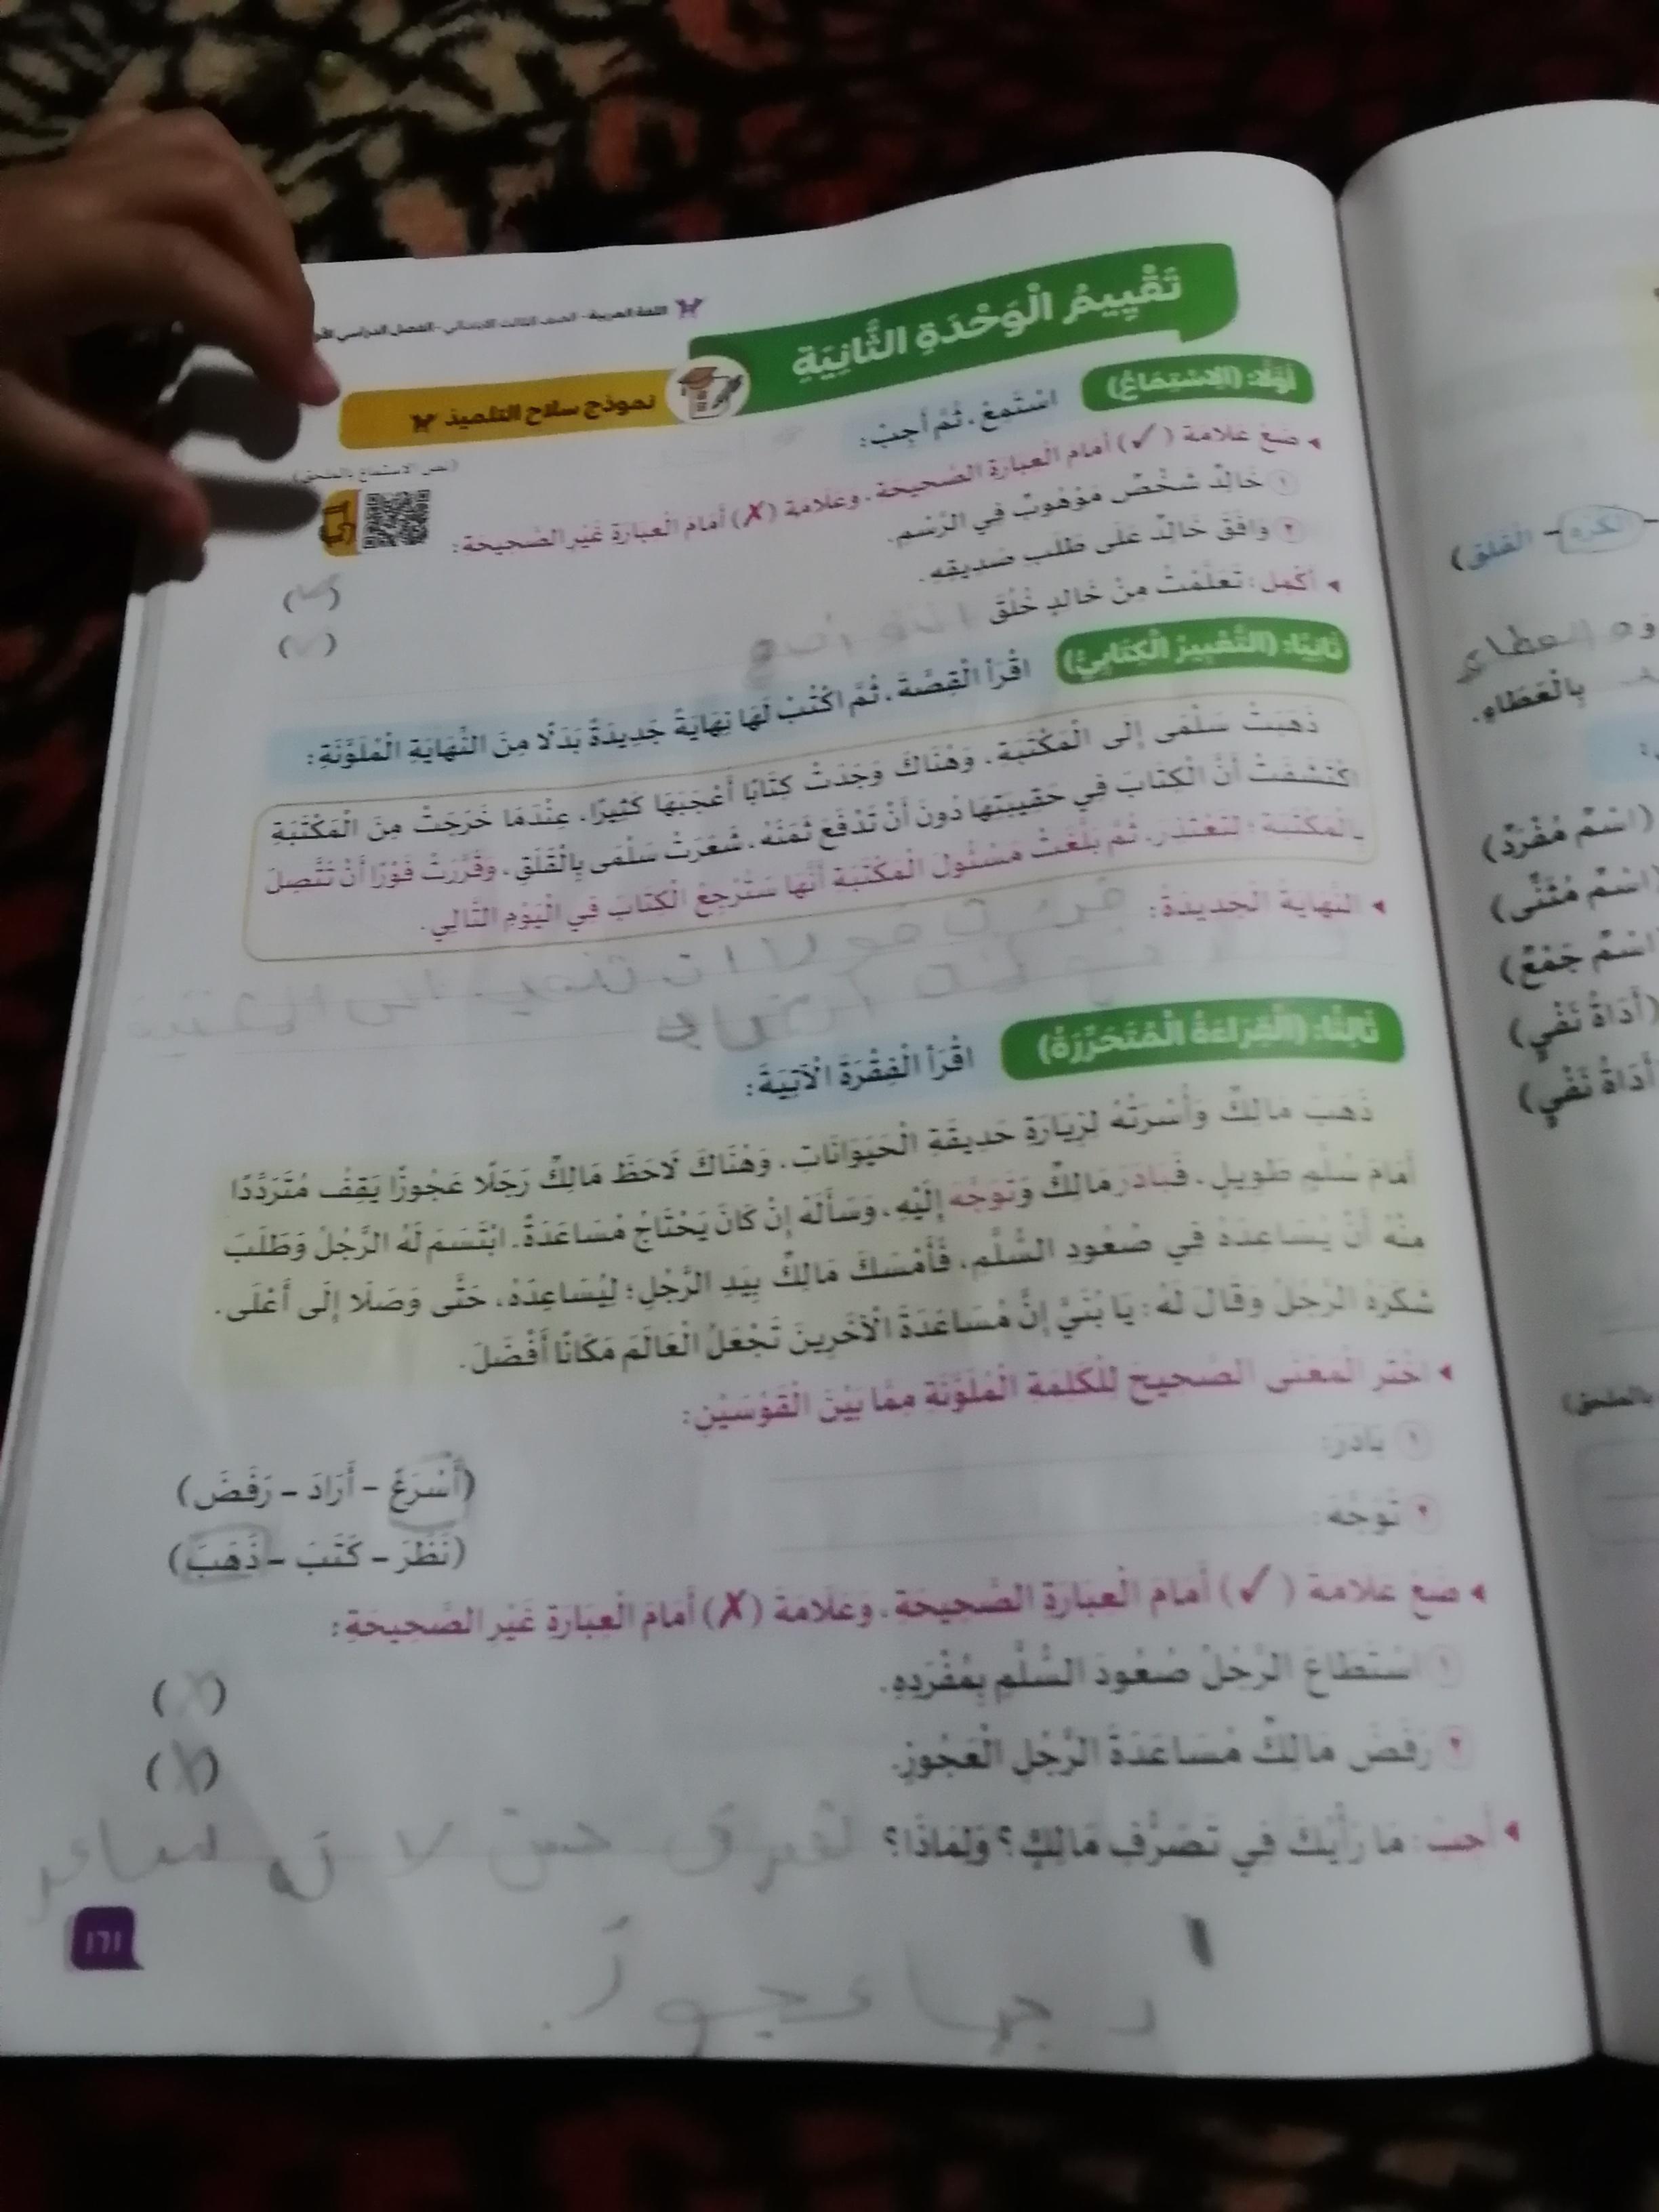 اللغة العربية - الصف الثالث الابتدائي - الفصل الدراسي
تَقْيِيمُ الْوَحْدَةِ الثَّانِيَةِ
نموذج سلاح التلميذ
أَوَّلًا: (الِاسْتِمَاعُ) اسْتَمِعْ، ثُمَّ أَجِبْ:
(نص الاستماع بالملحق)
ضَعْ علامة (✓) أَمَامَ الْعِبَارَةِ الصَّحِيحَةِ، وَعَلَامَةَ (✗) أَمَامَ الْعِبَارَةِ غَيْرِ الصَّحِيحَةِ:
١ خَالِدٌ شَخْصٌ مَوْهُوبٌ فِي الرَّسْمِ. (✓)
٢ وَافَقَ خَالِدٌ عَلَى طَلَبِ صَدِيقِهِ. ( )
أَكْمِلْ: تَعَلَّمْتُ مِنْ خَالِدٍ خُلُقَ
ثَانِيًا: (التَّعْبِيرُ الْكِتَابِيُّ) اقْرَأِ الْقِصَّةَ، ثُمَّ اكْتُبْ لَهَا نِهَايَةً جَدِيدَةً بَدَلًا مِنَ النِّهَايَةِ الْمُلَوَّنَةِ:
ذَهَبَتْ سَلْمَى إِلَى الْمَكْتَبَةِ، وَهُنَاكَ وَجَدَتْ كِتَابًا أَعْجَبَهَا كَثِيرًا، عِنْدَمَا خَرَجَتْ مِنَ الْمَكْتَبَةِ
اكْتَشَفَتْ أَنَّ الْكِتَابَ فِي حَقِيبَتِهَا دُونَ أَنْ تَدْفَعَ ثَمَنَهُ، شَعَرَتْ سَلْمَى بِالْقَلَقِ، وَقَرَّرَتْ فَوْرًا أَنْ تَتَّصِلَ
بِالْمَكْتَبَةِ؛ لِتَعْتَذِرَ، ثُمَّ بَلَّغَتْ مَسْئُولَ الْمَكْتَبَةِ أَنَّهَا سَتُرْجِعُ الْكِتَابَ فِي الْيَوْمِ التَّالِي.
النِّهَايَةُ الْجَدِيدَةُ:
ثَالِثًا: (الْقِرَاءَةُ الْمُتَحَرِّرَةُ) اقْرَأِ الْفِقْرَةَ الْآتِيَةَ:
ذَهَبَ مَالِكٌ وَأُسْرَتُهُ لِزِيَارَةِ حَدِيقَةِ الْحَيَوَانَاتِ، وَهُنَاكَ لَاحَظَ مَالِكٌ رَجُلًا عَجُوزًا يَقِفُ مُتَرَدِّدًا
أَمَامَ سُلَّمٍ طَوِيلٍ، فَبَادَرَ مَالِكٌ وَتَوَجَّهَ إِلَيْهِ، وَسَأَلَهُ إِنْ كَانَ يَحْتَاجُ مُسَاعَدَةً. ابْتَسَمَ لَهُ الرَّجُلُ وَطَلَبَ
مِنْهُ أَنْ يُسَاعِدَهُ فِي صُعُودِ السُّلَّمِ، فَأَمْسَكَ مَالِكٌ بِيَدِ الرَّجُلِ؛ لِيُسَاعِدَهُ، حَتَّى وَصَلَا إِلَى أَعْلَى.
شَكَرَهُ الرَّجُلُ وَقَالَ لَهُ: يَا بُنَيَّ إِنَّ مُسَاعَدَةَ الْآخَرِينَ تَجْعَلُ الْعَالَمَ مَكَانًا أَفْضَلَ.
اخْتَرِ الْمَعْنَى الصَّحِيحَ لِلْكَلِمَةِ الْمُلَوَّنَةِ مِمَّا بَيْنَ الْقَوْسَيْنِ:
١ بَادَرَ: (أَسْرَعَ - أَرَادَ - رَفَضَ)
٢ تَوَجَّهَ: (نَظَرَ - كَتَبَ - ذَهَبَ)
ضَعْ عَلَامَةَ (✓) أَمَامَ الْعِبَارَةِ الصَّحِيحَةِ، وَعَلَامَةَ (✗) أَمَامَ الْعِبَارَةِ غَيْرِ الصَّحِيحَةِ:
١ اسْتَطَاعَ الرَّجُلُ صُعُودَ السُّلَّمِ بِمُفْرَدِهِ. (X)
٢ رَفَضَ مَالِكٌ مُسَاعَدَةَ الرَّجُلِ الْعَجُوزِ. (X)
أَجِبْ: مَا رَأْيُكَ فِي تَصَرُّفِ مَالِكٍ؟ وَلِمَاذَا؟
عجوز.
١٦١
الكره - القلق)
بِالْعَطَاءِ.
(اسْمٌ مُفْرَدٌ)
(اسْمٌ مُثَنًّى)
(اسْمٌ جَمْعٌ)
(أَدَاةُ نَفْيٍ)
(أَدَاةُ نَفْيٍ)
بالملحق)